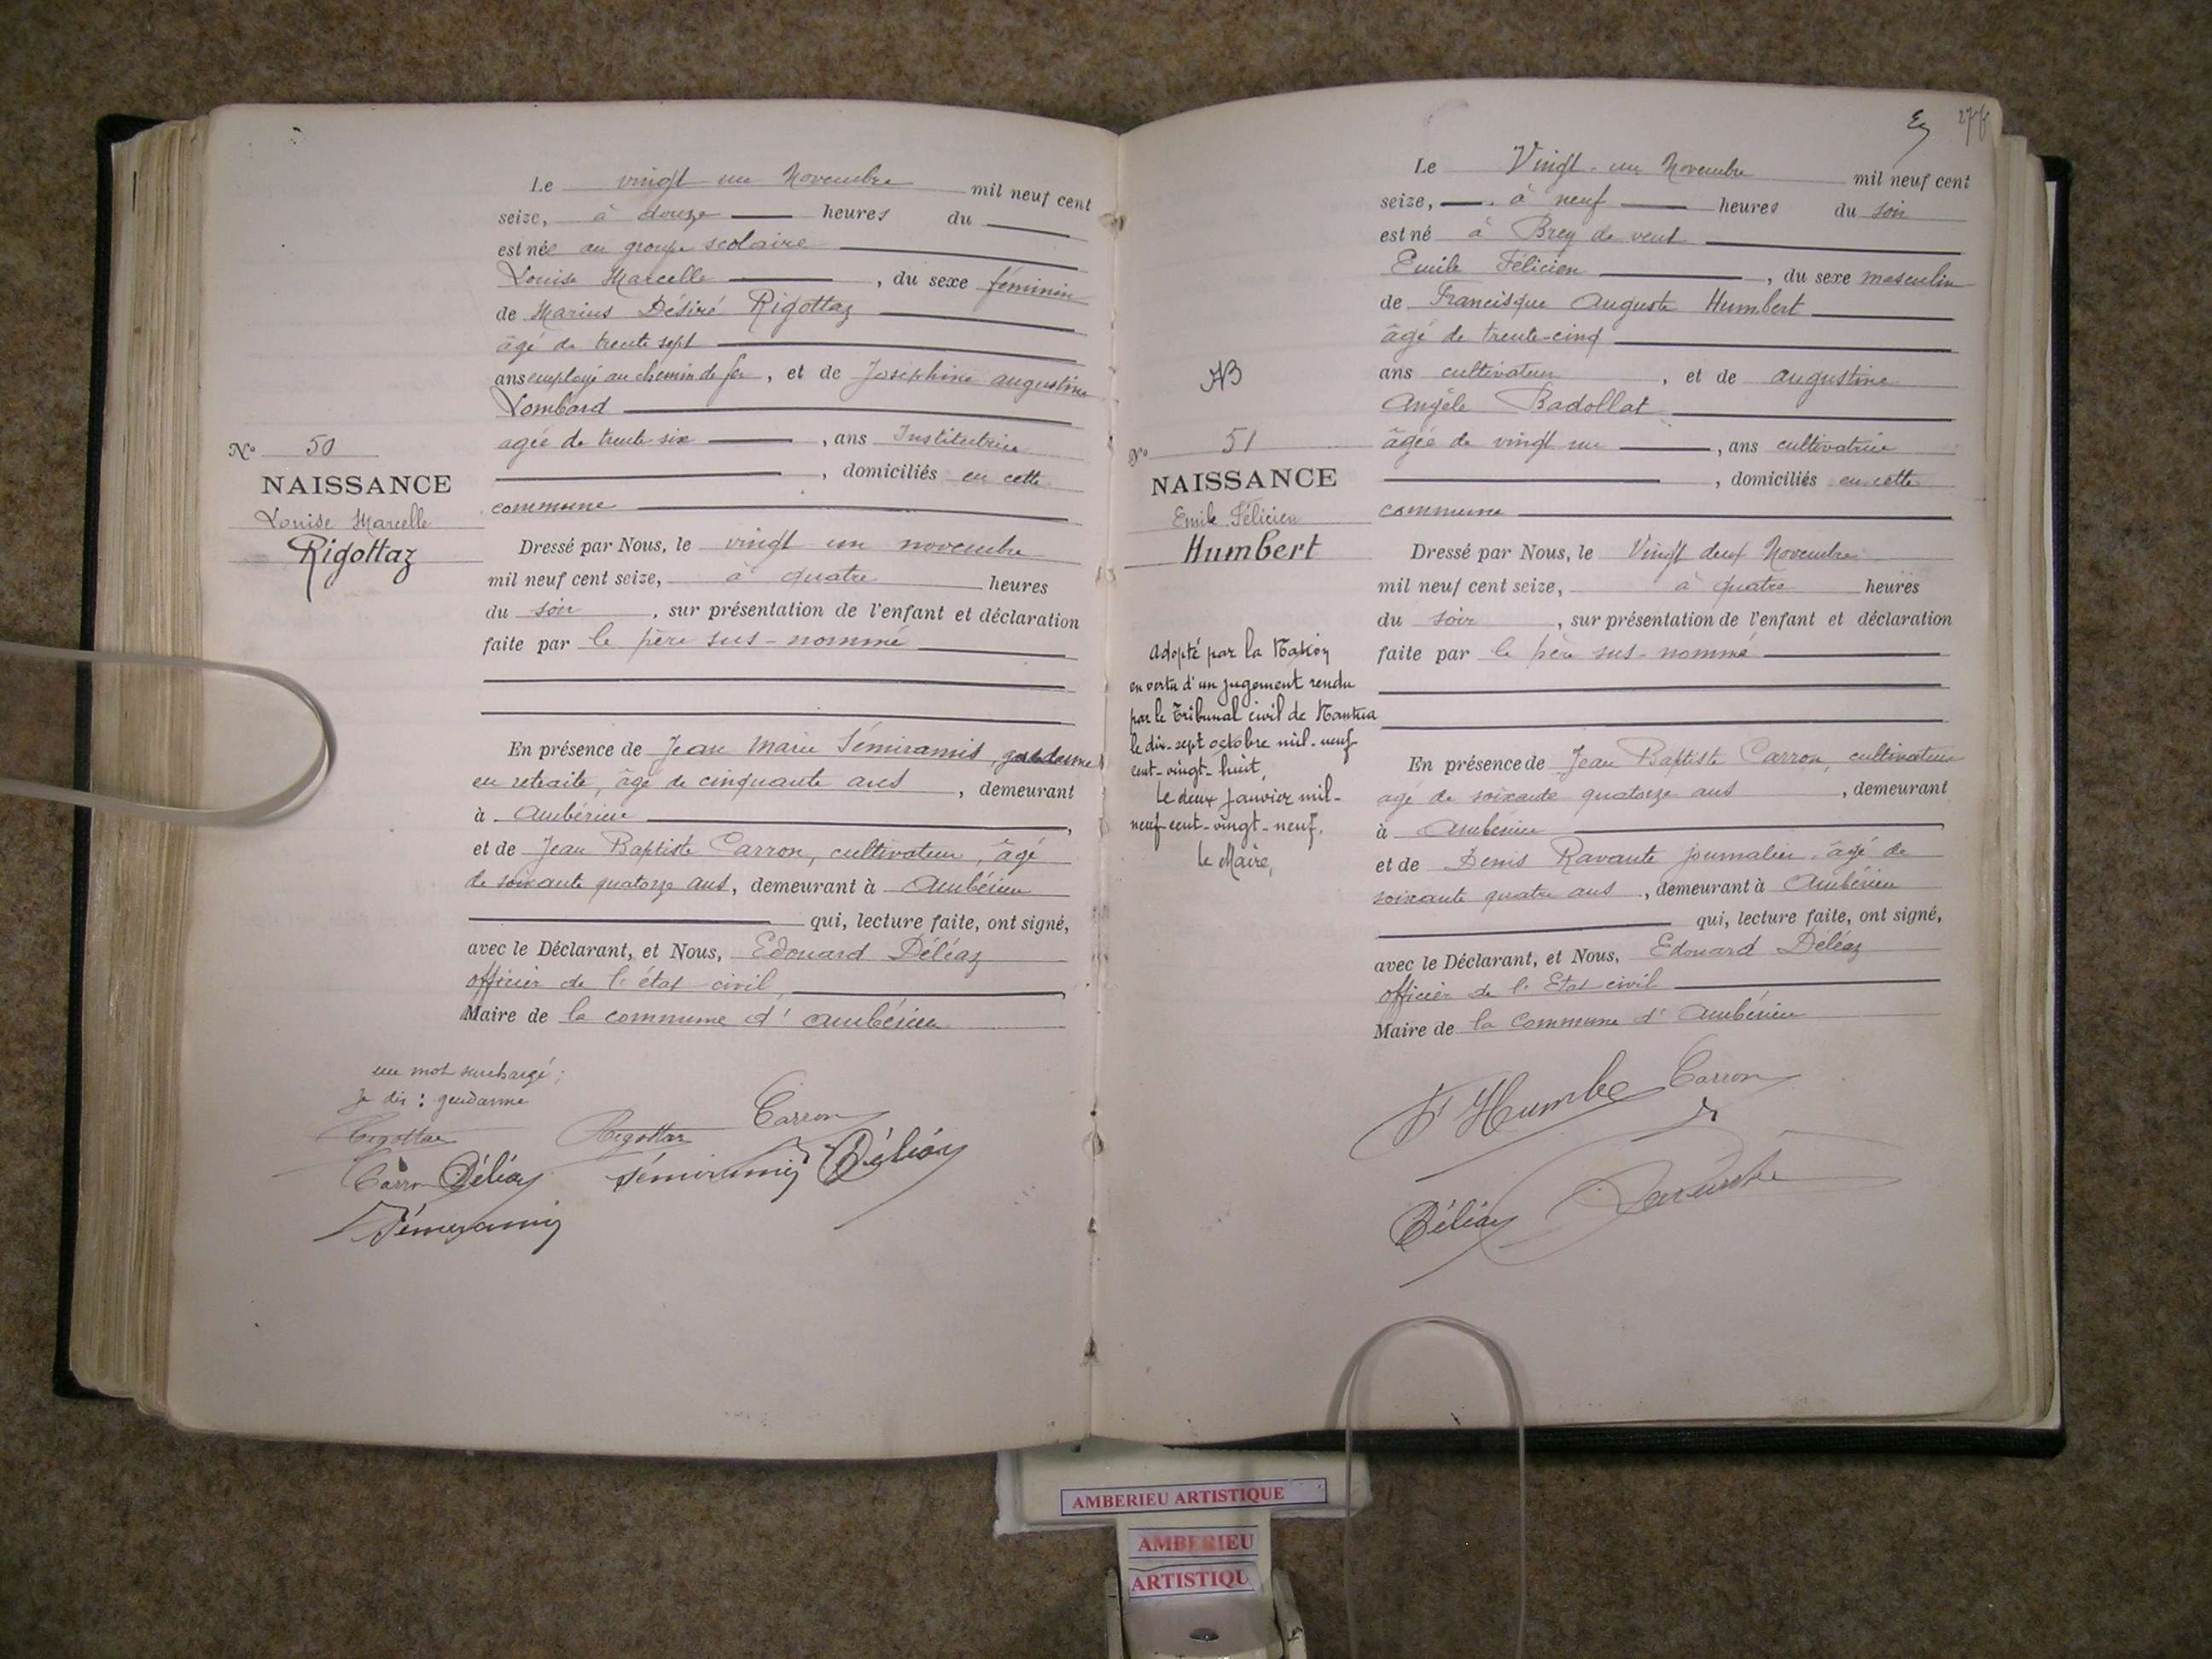 Le vingt un Novembre mil neuf cent
seize, à douze heures du
est née au groupe scolaire
Louise Marcelle, du sexe féminin
de Marius Désiré Rigottaz
âgé de trente sept
ans employé au chemin de fer, et de Joséphine augustine
Lombard
agée de trente-six, ans Institutrice
, domiciliés en cette
commune
N° 50
NAISSANCE
Louise Marcelle
Rigottaz
Dressé par Nous, le vingt un novembre
mil neuf cent seize, à quatre heures
du soir, sur présentation de l'enfant et déclaration
faite par le père sus-nommé
En présence de Jean Marie Sémiramis, gendarme
en retraite, âgé de cinquante ans, demeurant
à Ambérieu,
et de Jean Baptiste Carron, cultivateur, âgé
de soixante quatorze ans, demeurant à Ambérieu
qui, lecture faite, ont signé,
avec le Déclarant, et Nous, Edouard Déléaz
officier de l'état civil,
Maire de la commune d'Ambérieu
un mot surchargé;
je dis : gendarme
Rigottaz Rigottaz Carron
Carron Déléaz Sémiramis Déléaz
Sémiramis
Le Vingt-un Novembre mil neuf cent
seize, à neuf heures du soir
est né à Brey de vent
Emile Félicien, du sexe masculin
de Francisque Auguste Humbert
âgé de trente-cinq
ans cultivateur, et de augustine
Angèle Badollat
âgée de vingt un, ans cultivatrice
, domiciliés en cette
commune
N° 51
NAISSANCE
Emile Félicien
Humbert
Dressé par Nous, le Vingt deux Novembre
mil neuf cent seize, à quatre heures
du soir, sur présentation de l'enfant et déclaration
faite par le père sus-nommé
Adopté par la Nation
en vertu d'un jugement rendu
par le Tribunal civil de Nantua
le dix-sept octobre mil-neuf-
cent-vingt-huit,
Le deux janvier mil-
neuf-cent-vingt-neuf.
Le Maire,
En présence de Jean Baptiste Carron, cultivateur
agé de soixante quatorze ans, demeurant
à Ambérieu
et de Denis Ravante journalier, âgé de
soixante quatre ans, demeurant à Ambérieu
qui, lecture faite, ont signé,
avec le Déclarant, et Nous, Edouard Déléaz
officier de l'Etat civil
Maire de la Commune d'Ambérieu
Humbe Carron
Déléaz
AMBERIEU ARTISTIQUE
AMBERIEU
ARTISTIQU